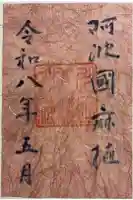 阿波國麻植
令和八年五月